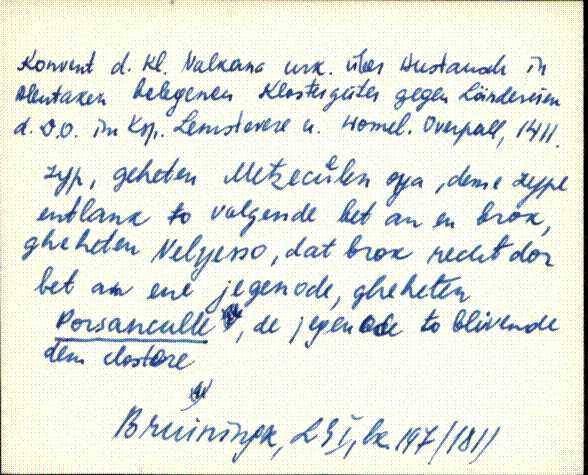 Konvent d. Kl. Valkana urk. über Austausch in
Alentaken belegener Klostergüter gegen Ländereien
d. D.O. im Ksp. u. Overpall, 1411.
zyp, geheten Metzecůlen oya, deme zype
entlank to volgende bet an en brok,
gheheten Velyesso, dat brok recht dor
bet an ene jegenode, gheheten
Porsanculle, de jegenode to blivende
dem clostere
Bruiningk, LGI, lk. 197/181/